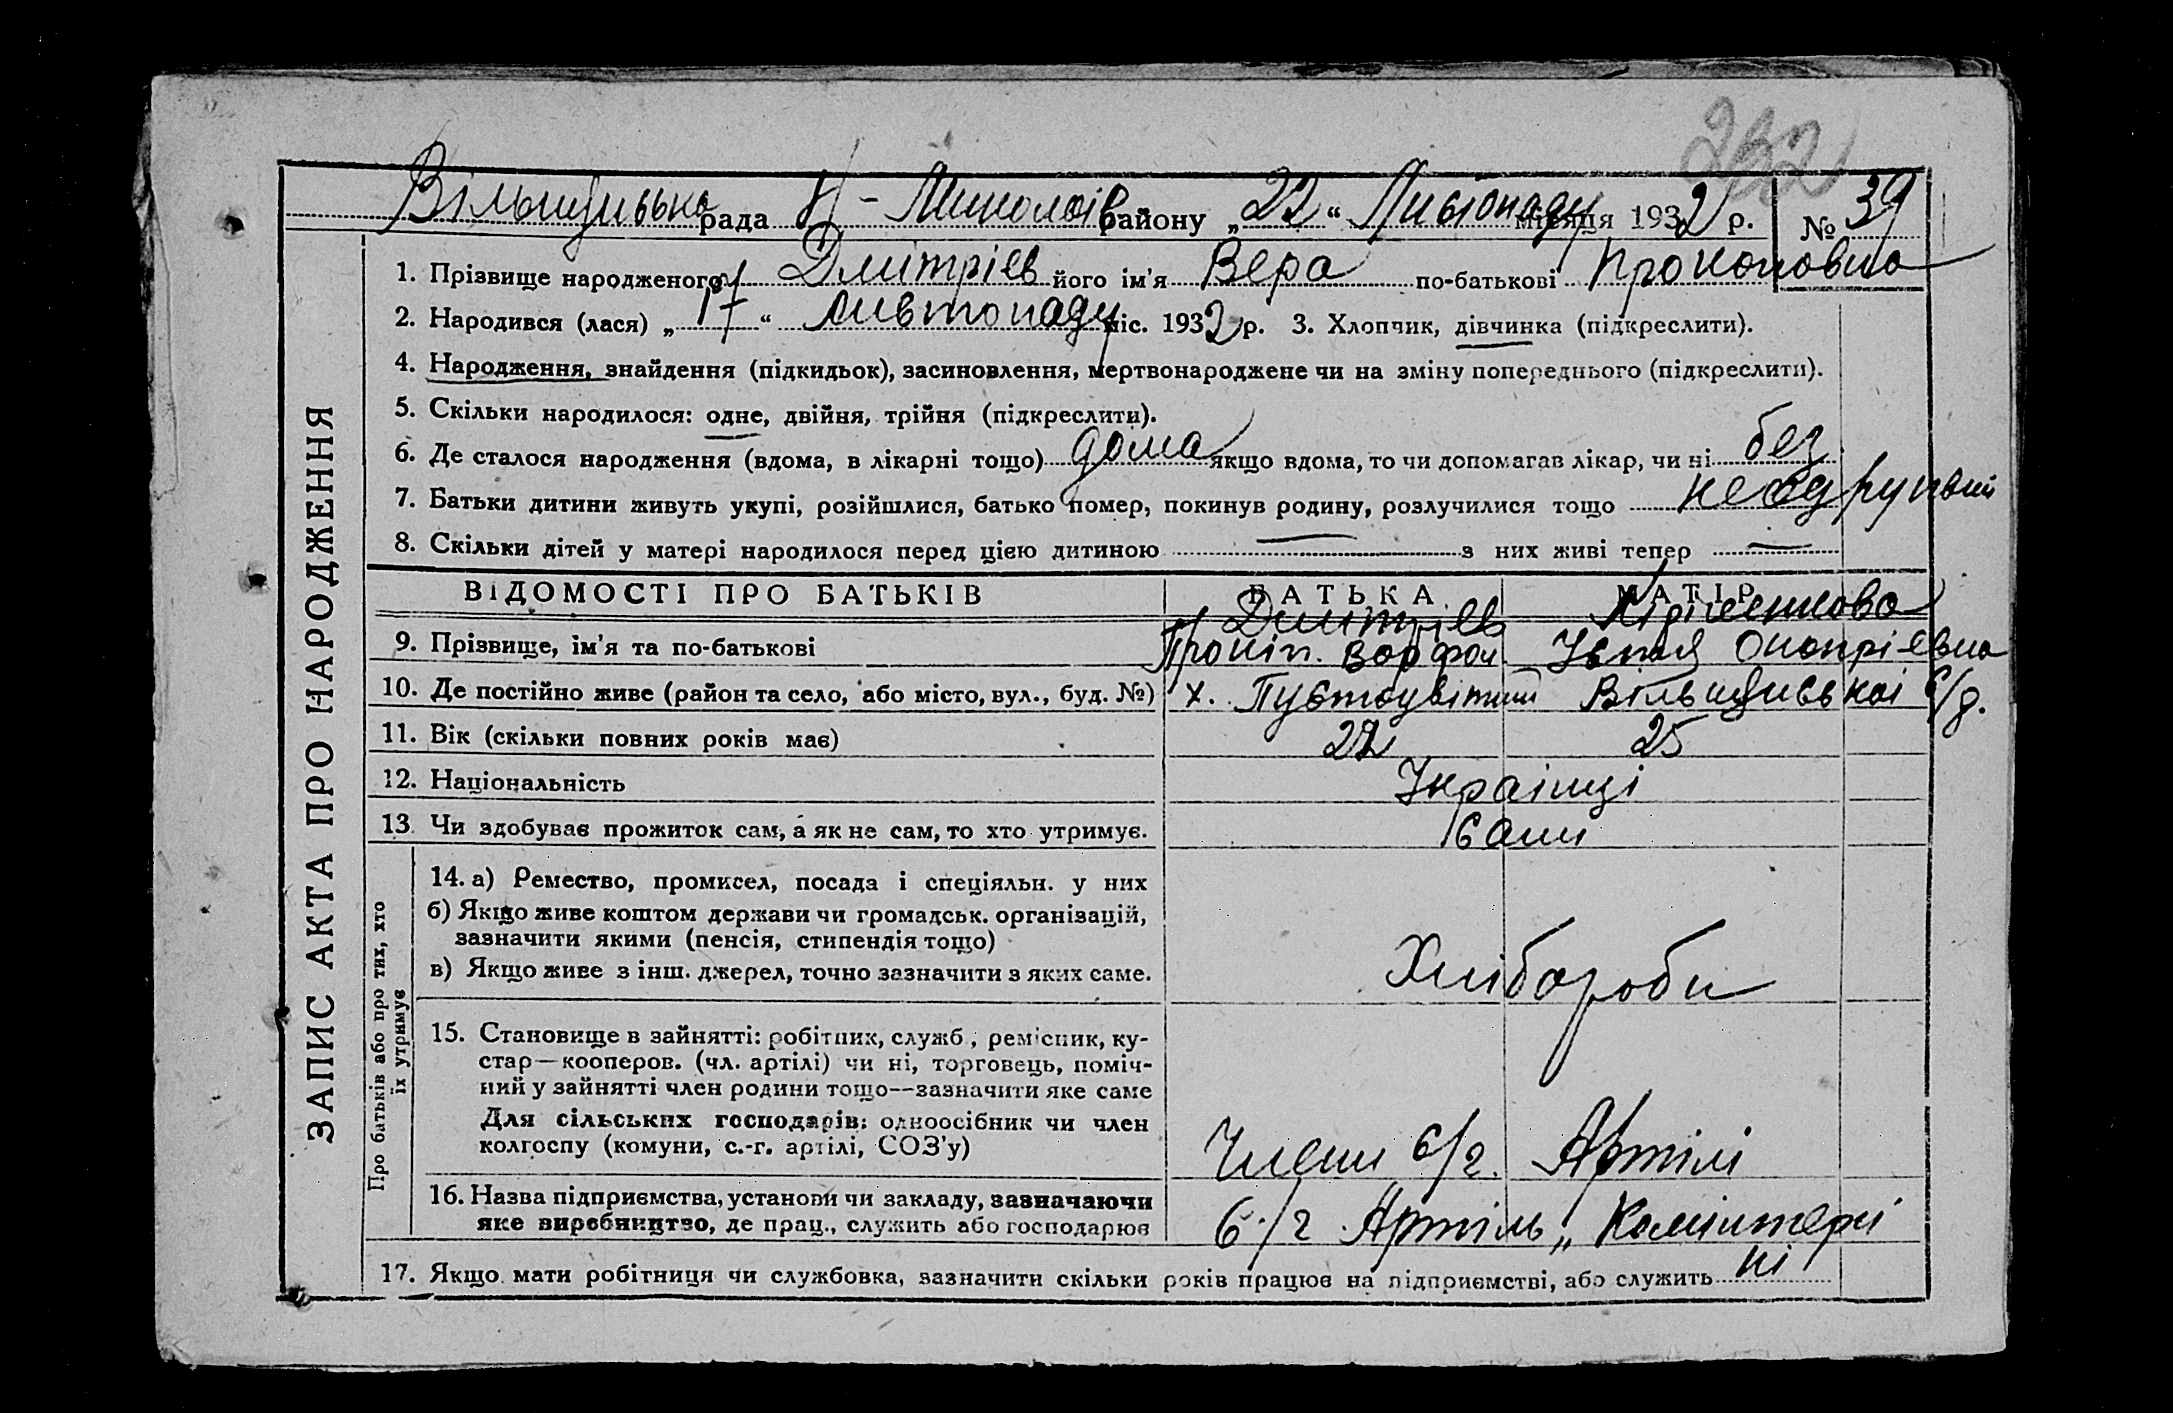 232
Вільшуиська рада Н-Миколаїв району „22“ Листопаду місяця 1932 р. № 39
1. Прізвище народженого Дмітрієв його ім'я Вера по-батькові Прокоповна
2. Народився (лася) „17“ листопаду міс. 1932 р. 3. Хлопчик, дівчинка (підкреслити).
4. Народження, знайдення (підкидьок), засиновлення, мертвонароджене чи на зміну попереднього (підкреслити).
5. Скільки народилося: одне, двійня, трійня (підкреслити).
6. Де сталося народження (вдома, в лікарні тощо) дома якщо вдома, то чи допомагав лікар, чи ні без
7. Батьки дитини живуть укупі, розійшлися, батько помер, покинув родину, розлучилися тощо
8. Скільки дітей у матері народилося перед цією дитиною — з них живі тепер —
ВІДОМОСТІ ПРО БАТЬКІВ БАТЬКА МАТІР
9. Прізвище, ім'я та по-батькові Дмитрієв Прокіп. Варфол. Онопріевна
10. Де постійно живе (район та село, або місто, вул., буд. №) х. Пустоцвітний с/р.
11. Вік (скільки повних років має) 25
12. Національність Українці
13. Чи здобуває прожиток сам, а як не сам, то хто утримує. Сами
14. а) Ремество, промисел, посада і спеціяльн. у них
б) Якщо живе коштом держави чи громадськ. організацій,
зазначити якими (пенсія, стипендія тощо)
в) Якщо живе з інш. джерел, точно зазначити з яких саме.
Хлібороби
15. Становище в зайнятті: робітник, служб., ремісник, ку-
стар—кооперов. (чл. артілі) чи ні, торговець, поміч-
ний у зайнятті член родини тощо—зазначити яке саме
Для сільських господарів: одноосібник чи член
колгоспу (комуни, с.-г. артілі, СОЗ'у)
Члени с/г. Артілі
16. Назва підприємства, установи чи закладу, зазначаючи
яке виробництво, де прац., служить або господарює
С/г Артіль „Комінтерн
17. Якщо мати робітниця чи службовка, зазначити скільки років працює на підприємстві, або служить ні
ЗАПИС АКТА ПРО НАРОДЖЕННЯ
Про батьків або про тих, хто
їх утримує